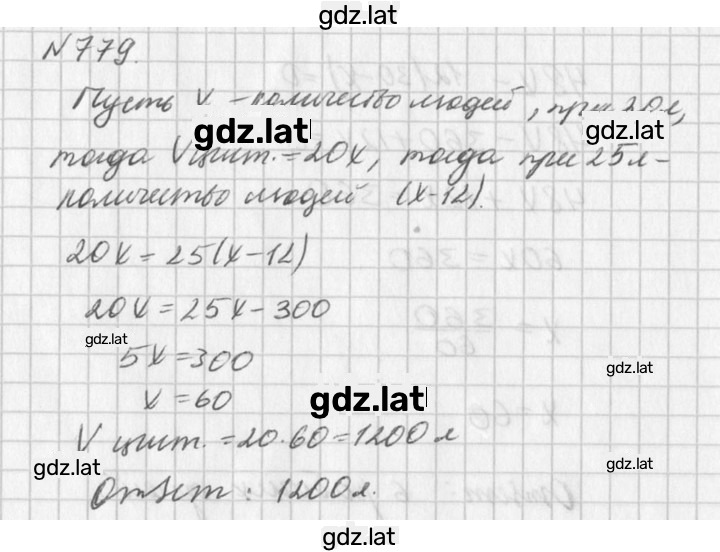 gdz.lat
N779.
Пусть x - количество людей, при 20л,
gdz.lat
gdz.lat
тогда Vцист. = 20x, тогда при 25л -
количество людей (x-12).
20x = 25(x-12)
20x = 25x - 300
gdz.lat
5x = 300
gdz.lat
x = 60
gdz.lat
V цист. = 20·60 = 1200 л
gdz.lat
gdz.lat
Ответ: 1200л.
gdz.lat